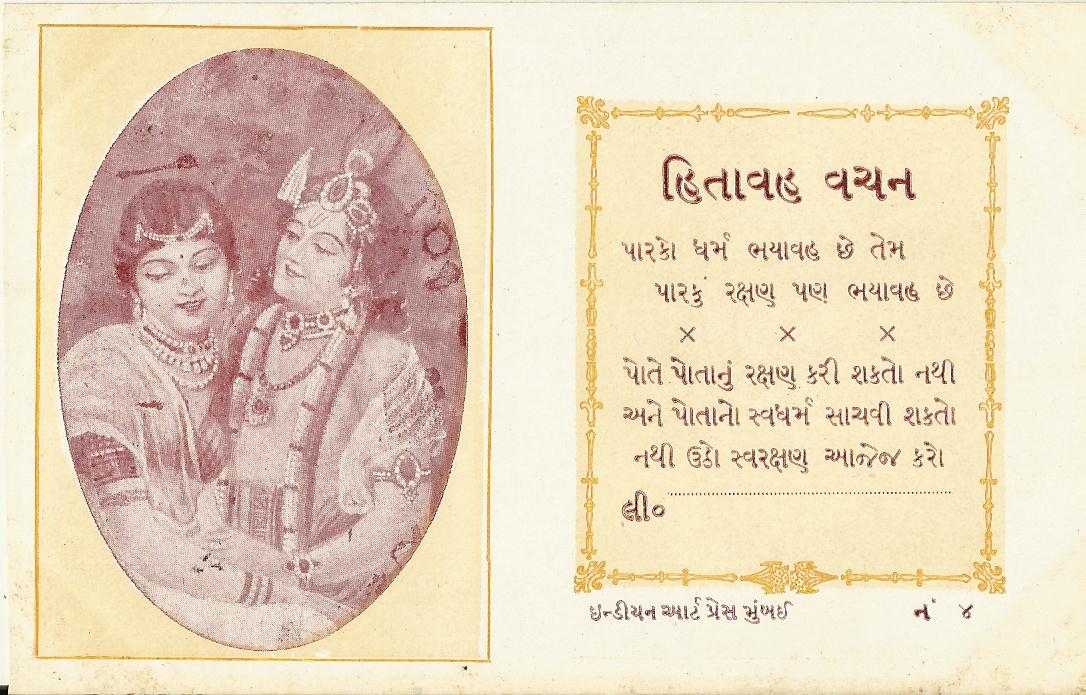 હિતાવહ વચન
પારકો ધર્મ ભયાવહ છે તેમ
પારકું રક્ષણ પણ ભયાવહ છે
× × ×
પોતે પોતાનું રક્ષણ કરી શકતો નથી
અને પોતાનો સ્વધર્મ સાચવી શકતો
નથી ઉઠો સ્વરક્ષણ આજેજ કરો
લી૦
ઇન્ડીયન આર્ટ પ્રેસ મુંબઈ નં ૪